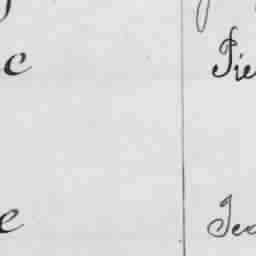 c Pie
e Jea